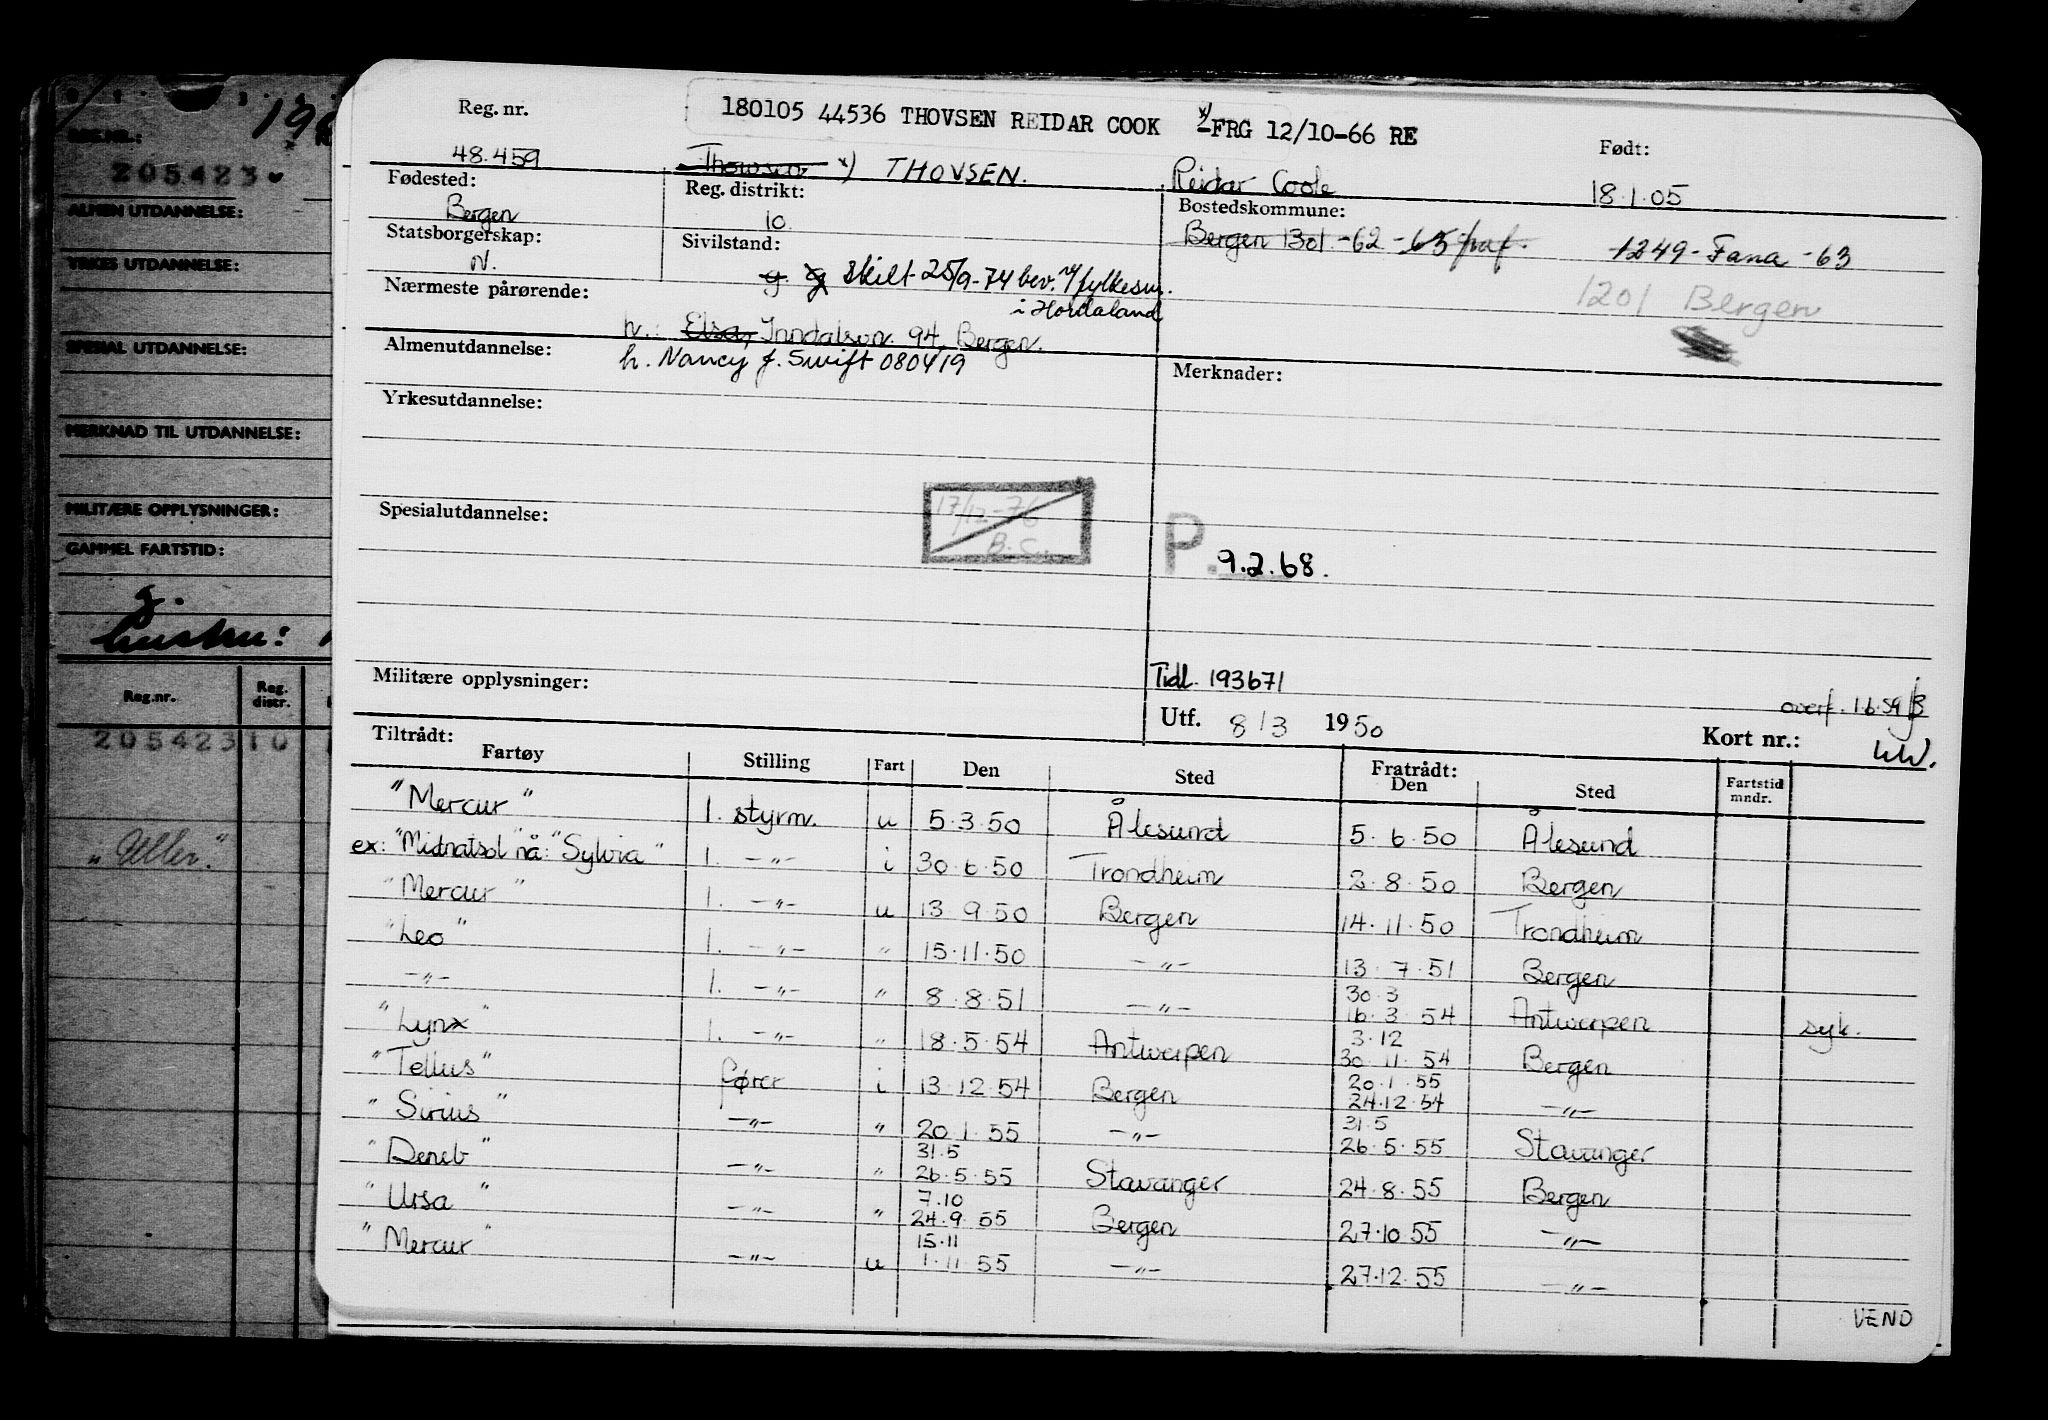 180105 44536 THOVSEN REIDAR COOK x/-FRG 12/10-66 RE
Reg. nr.
48.459
Thowsen x) THOVSEN.
Reidar Cook
Født:
18.1.05
Fødested:
Bergen
Reg. distrikt:
10
Bostedskommune:
Bergen 1301.-62 -63
1249-Fana-63
1201 Bergen
Statsborgerskap:
N.
Sivilstand:
g. g skilt 25/9-74 bev. v/fylkesm.
i Hordaland
Nærmeste pårørende:
h.: Elsa, Inndalsvn. 94, Bergen.
h. Nancy f. Swift 080419
Almenutdannelse:
Merknader:
Yrkesutdannelse:
Spesialutdannelse:
17/12-76
B.C.
P. 9.2.68.
Militære opplysninger:
Tidl. 193671
overf. 1.6.59/B
Utf. 8/3 1950
Kort nr.:
Tiltrådt:
Fratrådt:
Fartøy Stilling Fart Den Sted Den Sted Fartstid mndr.
"Mercur" 1. styrm. u 5.3.50 Ålesund 5.6.50 Ålesund
ex: "Midnatsol" nå: "Sylvia" 1. -"- i 30.6.50 Trondheim 2.8.50 Bergen
"Mercur" 1. -"- u 13.9.50 Bergen 14.11.50 Trondheim
"Leo" 1. -"- " 15.11.50 -"- 13.7.51 Bergen
30.3
-"- 1. -"- " 8.8.51 -"- 16.3.54 Antwerpen syk.
3.12
"Lynx" 1. -"- " 18.5.54 Antwerpen 30.11.54 Bergen
20.1.55
"Tellus" fører i 13.12.54 Bergen 24.12.54 -"-
31.5
"Sirius" -"- " 20.1.55 -"- 26.5.55 Stavanger
31.5
"Deneb" -"- " 26.5.55 Stavanger 24.8.55 Bergen
7.10
"Ursa" -"- " 24.9.55 Bergen 27.10.55 -"-
15.11
"Mercur" -"- u 1.11.55 -"- 27.12.55 -"-
VEND
REG.NR.:
205423
ALMEN UTDANNELSE:
YRKES UTDANNELSE:
SPESIAL UTDANNELSE:
MERKNAD TIL UTDANNELSE:
MILITÆRE OPPLYSNINGER:
GAMMEL FARTSTID:
g.
hustru:
Reg.nr. Reg. distr.
205423 10
"Uller"